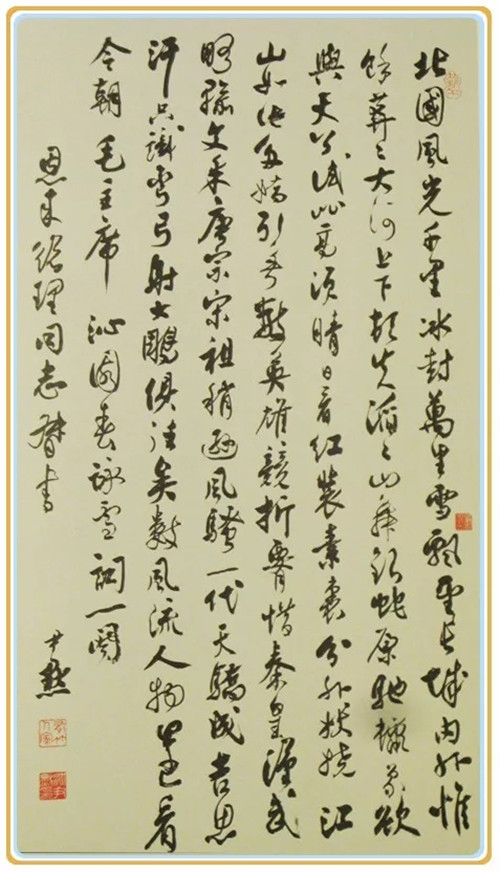 北國風光千里冰封萬里雪飄望長城内外惟
餘莽々大河上下頓失滔々山舞銀蛇原馳蠟象欲
與天公試比高須晴日看紅裝素裹分外妖嬈江
山如此多嬌引無數英雄競折腰惜秦皇漢武
略輸文采唐宗宋祖稍遜風騷一代天驕成吉思
汗只識彎弓射大鵰俱往矣數風流人物還看
今朝 毛主席 沁園春詠雪詞一闋
恩来總理同志書 尹默